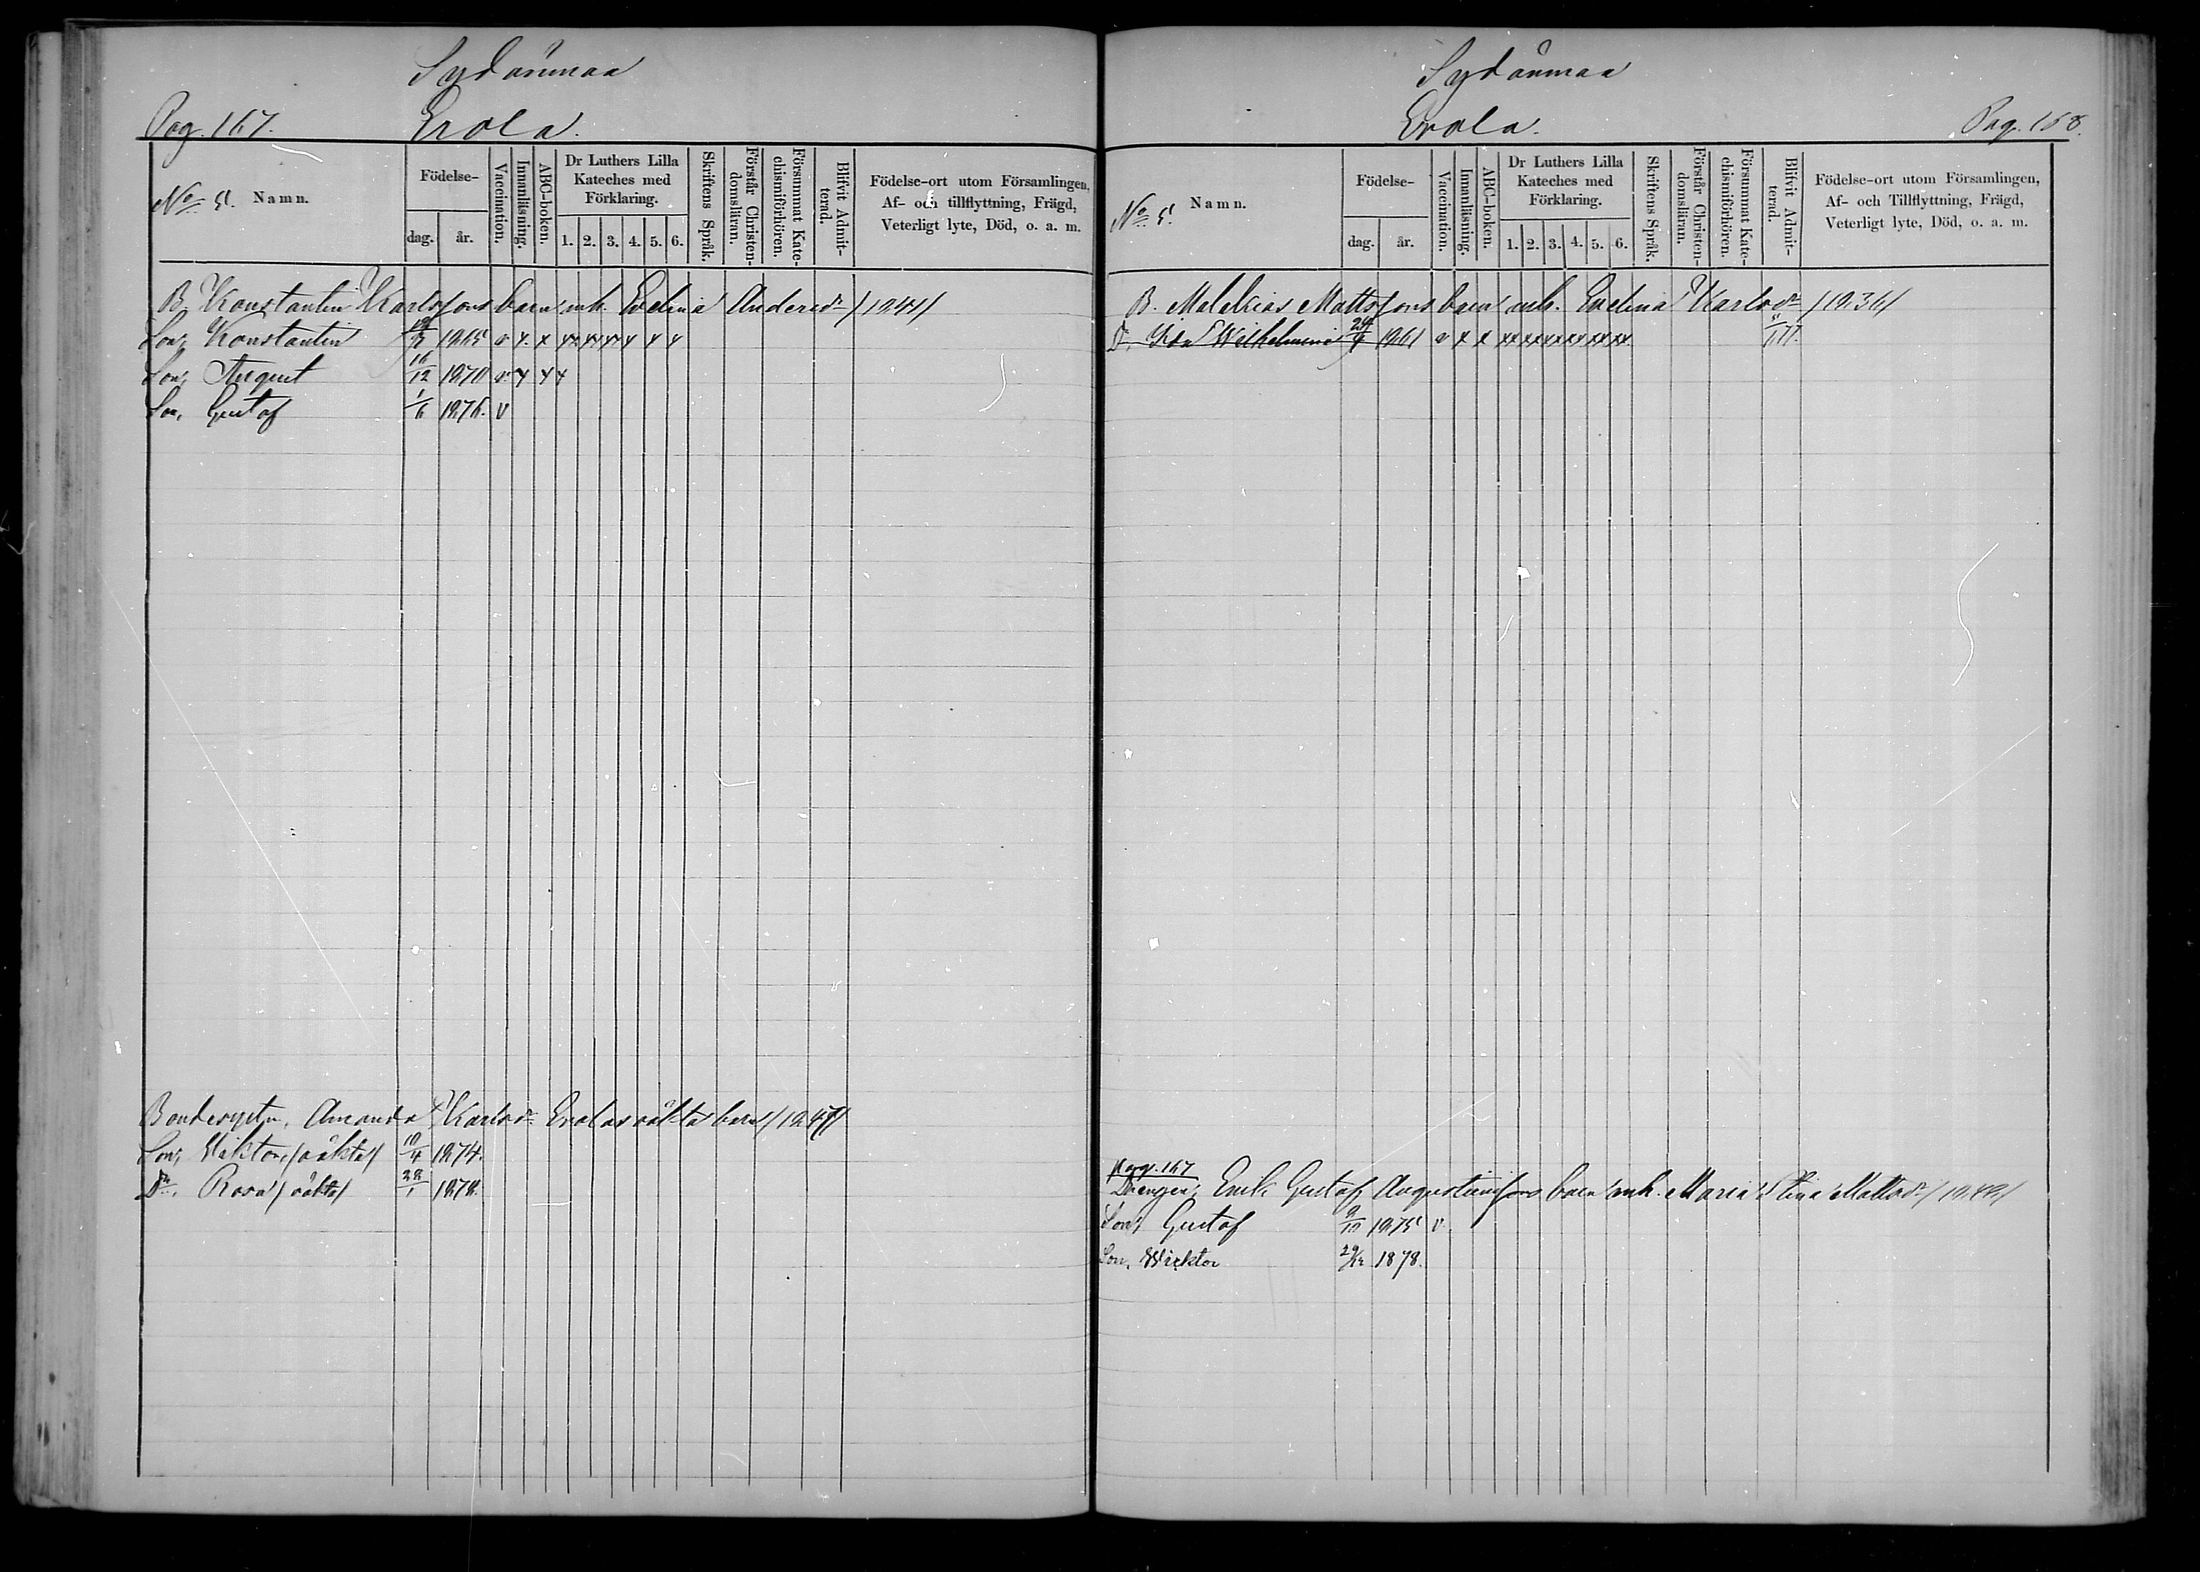 Sydänmaa
Pag. 167. Erola.
No 5. Namn.
Födelse-
dag. år.
Vaccination.
Innanläsning.
ABC-boken.
Dr Luthers Lilla
Kateches med
Förklaring.
1. 2. 3. 4. 5. 6.
Skriftens Språk.
Förstår Christen-
domsläran.
Försummat Kate-
chismiförhören.
Blifvit Admit-
terad.
Födelse-ort utom Församlingen,
Af- och tillflyttning, Frägd,
Veterligt lyte, Död, o. a. m.
B. Konstantin Karlssons barn m/h. Evelina Andersdr /1841/
Son, Konstantin 1865 v x x x x x x x x
Son, August 16/12 1870 v x x x
Son, Gustaf 1/6 1876. v
Bondesystn, Amanda Karlsdr Erolas oäkta barn /1847/
Son, Viktor, /oäkta/ 18/4 1874.
Dr, Rosa /oäkta/ 28/1 1878.
Sydänmaa
Erola. Pag. 168.
No 5. Namn.
Födelse-
dag. år.
Vaccination.
Innanläsning.
ABC-boken.
Dr Luthers Lilla
Kateches med
Förklaring.
1. 2. 3. 4. 5. 6.
Skriftens Språk.
Förstår Christen-
domsläran.
Försummat Kate-
chismiförhören.
Blifvit Admit-
terad.
Födelse-ort utom Församlingen,
Af- och Tillflyttning, Frägd,
Veterligt lyte, Död, o. a. m.
B. Malakias Mattssons barn m/h. Evelina Karlsdr /1836/
D. Ida Wilhelmina 1861 v x x xx xx xx xx xx xx
Pag. 167
Drengen, Erik Gustaf Augustinssons barn m/h. Maria Stina Mattsdr /1848/
Son, Gustaf 1875 v.
Son, Wicktor 29/12 1878.